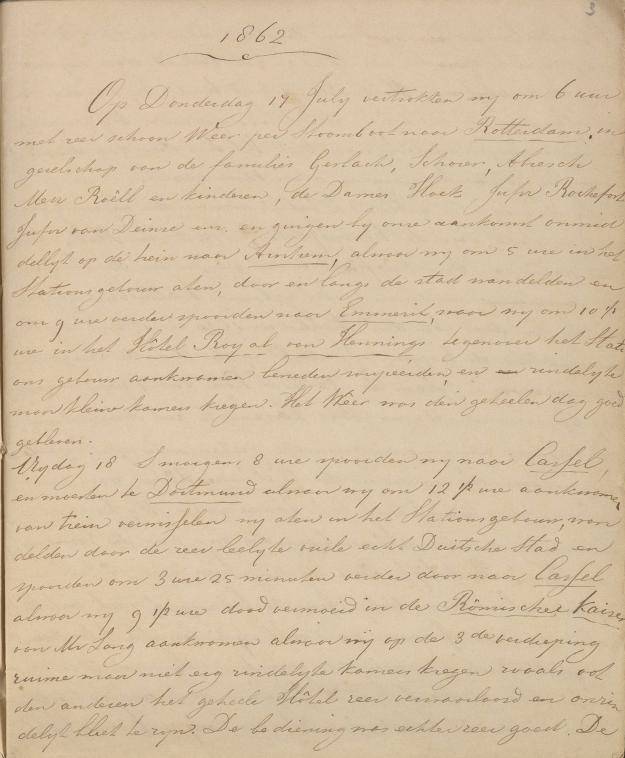 3
1862
Op Donderdag 17 July vertrokken wy om 6 uur
met zeer schoon Weer per Stoomboot naar Rotterdam, in
gezelschap van de families Gerlach, Schorer, Abresch
Mevr Roëll en kinderen, de Dames Hoek Jufvr Rochefort
Jufvr van Deinse enz. en gingen by onze aankomst onmid
dellyk op de trein naar Arnhem, alwaar wy om 5 ure in het
Stationsgebouw aten, door en langs de stad wandelden en
om 9 ure verder spoorden naar Emmerik, waar wy om 10 1/2
ure in het Hôtel Royal van Hennings tegenover het Stati
ons gebouw aankwamen beneden soupeerden, en zindelyke
maar kleine kamers kregen. Het Wêer was den geheelen dag goed
gebleven.
Vrydag 18 S morgens 8 ure spoorden wy naar Cassel,
en moesten te Dortmund alwaar wy om 12 1/2 ure aankwamen
van trein verwisselen wy aten in het Stationsgebouw, wan
delden door de zeer leelyke vuile echt Duitsche Stad en
spoorden om 3 ure 25 minuten verder door naar Cassel
alwaar wy 9 1/2 ure dood vermoeid in de Römischer Kaiser
van Mr Lang aankwamen alwaar wy op de 3de verdieping
ruime maar niet erg zindelyke kamers kregen zooals ook
den anderen het geheele Hôtel zeer verwaarloosd en onzin
delyk bleek te zyn. De bediening was echter zeer goed. De